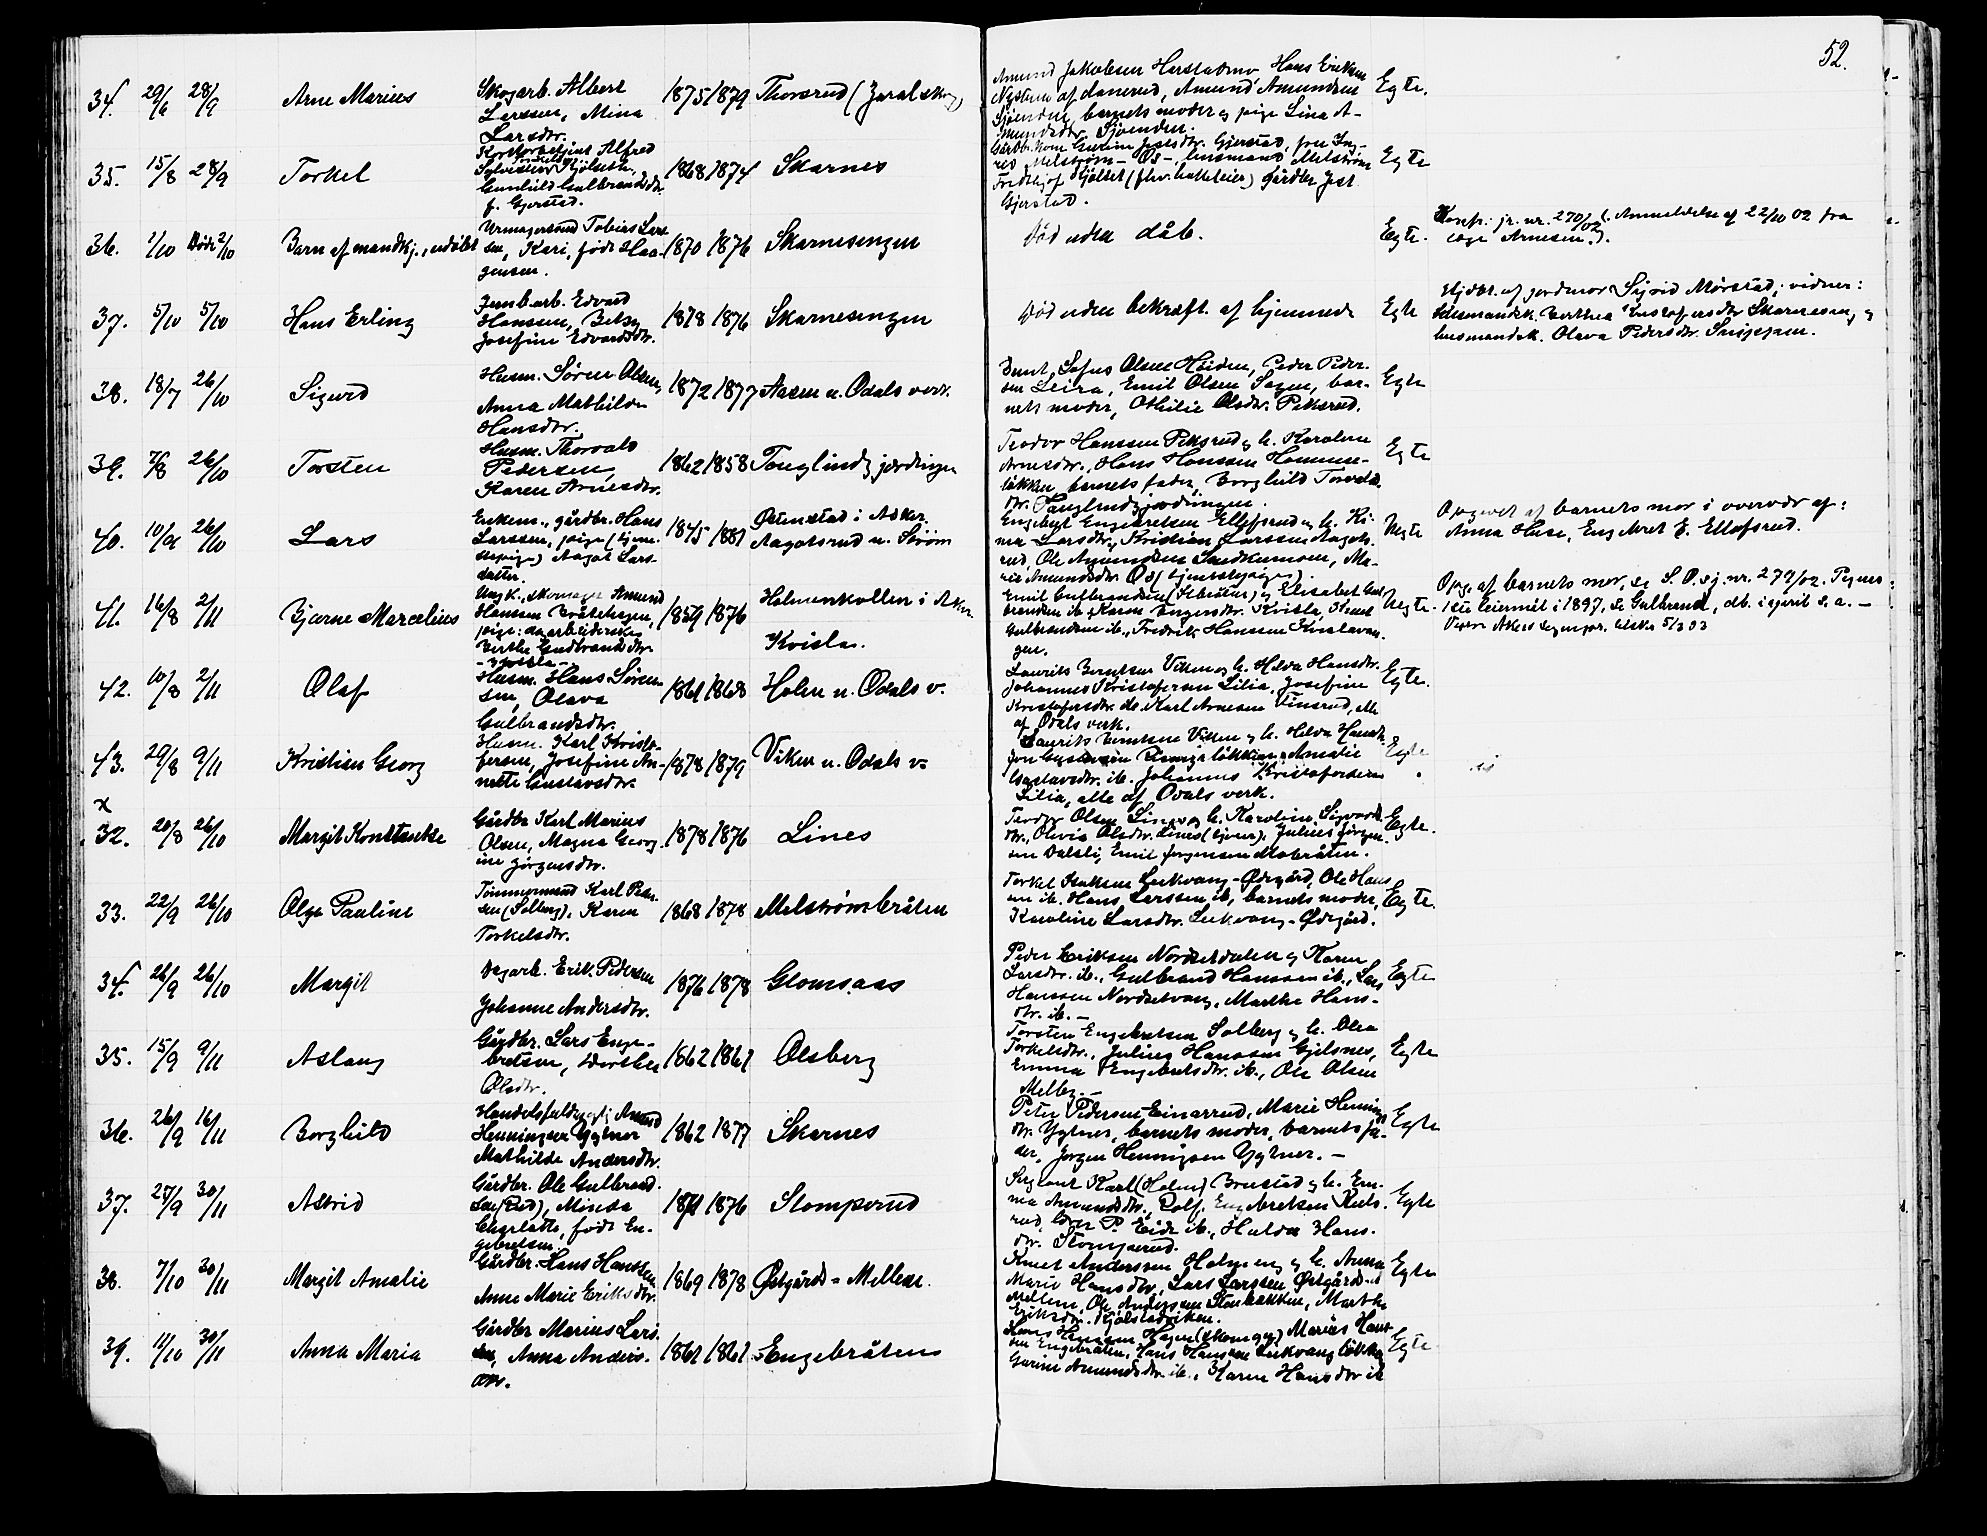 52.
34. 29/6 28/9 Arne Marius Skogarb. Albert Larssen, Mina Larsdtr. 1875 1879 Thorsrud
Amund Jakobsen Harstadmo, Hans Eriksen Egte.
Nystuen af danerud, Amund Amundsen
Sjøenden, barnets moder og pige Lina A-
mundsdtr. Sjøenden.
35. 15/8 28/9 Torkel Kontorbetjent Alfred
Gunhild Gulbrandsdtr.
f. Gjerstad. 1868 1874 Skarnes
Gjerstad, fru In-
Melstrøm - Os -, husmand Melstrøm Egte
Fridthjof gårdbr. Jost
Gjerstad.
36. 1/10 Død 2/10 Barn af mandkj., udøbt Urmagersvend Tobias Lars-
sen, Kari, født Haa-
gensen. 1870 1876 Skarnesengen
Død uden dåb. Egte. Konfr. jr. nr. 270/02 (Anmeldelse af 22/10 02 fra
læge Arnesen.).
37. 5/10 5/10 Hans Erling Jernb.arb. Edvard
Hanssen, Betsy
Josefine Edvardsdtr. 1878 1876 Skarnesengen
Død uden bekræft. af hjemmedb. Egte
Hj.dbt. af jordmor Sigrid Mørstad; vidner:
Berthea Kristofersdtr. Skarneseng og
husmandsk. Olava Pedersdtr.
38. 18/7 26/10 Sigurd Husm. Søren Olsen,
Anna Mathilde
Hansdtr. 1872 1877 Aasen u. Odals verk.
Sofus Olsen Høiden, Peder Peder-
sen Leira, Emil Olsen Sagen, bar- Egte
nets moder, Othilie Olsdtr. Piksrud.
39. 7/8 26/10 Torsten Husm. Thorvald
Pedersen,
Karen Arnesdtr. 1862 1858 Tonglindgjærdingen
Teodor Hanssen Piksrud og h. Karoline
Arnesdtr., Hans Hanssen Hammer- Egte
løkken, barnets fader, Borghild Torvalds-
dtr. Tanglindgjærdingen.
40. 10/9 26/10 Lars Enkem., gårdbr. Hans
Larssen, pige (tjene-
stepige) Aagot Lars-
datter. 1845 1881 Østenstad i Asker.
Aagotsrud u. Strøm
Engebret Engebretsen Ellefsrud og h. Ki-
Larsdtr., Kristian Larssen Aagots- Uegte
rud, Ole Amundsen Sandkumoen, Ma-
rie Amundsdtr. Os (tjenestepige).
Opgivet af barnets mor i overvær af:
Anna Huse, Eng.bret E. Ellefsrud.
41. 16/8 2/11 Bjarne Marcelius Ung k., skomager Amund
Hanssen Bråtehagen,
pige: dagarbeiderske
Berthe Gudbrandsdtr.
- Kvisla - 1859 1876 Holmenkollen i Aker
Kvisla.
Emil Gulbrandsen og Elisabet Gul-
brandsen ib., Karen Kvisla, Uegte.
Gulbrandsen ib., Fredrik Hanssen Kvislavan-
gen.
Opg. af barnets mor, se S. P. sj. nr. 272/02. Pigens
1ste leiermål i 1897, se Gulbrand, db. i april s. a. -
42. 10/8 2/11 Olaf Husm. Hans Søren-
sen, Olava
Gulbrandsdtr. 1861 1868 Holen u. Odals v.
Laurits Berntsen Viken og h. Hilda Hansdtr.
Johannes Kristofersen Lilia, Josefine Egte.
Kristofersdtr. ib. Karl Arnesen Finsrud, alle
af Odals verk.
43. 29/8 9/11 Kristian Georg Husm. Karl Kristo-
fersen, Josefine An-
nette Gustavsdtr. 1878 1879 Viken u. Odals v.
Laurits Berntsen Viken og h. Hilda Hansdtr.
Amalie Egte
Gustavsdtr. ib. Johannes Kristofersen
Lilia, alle af Odals verk.
x
32. 20/8 26/10 Margit Konstanse Gårdbr Karl Marius
Olsen, Magna Georg-
ine Jørgensdtr. 1878 1876 Lines
Teodor Olsen Lines og h. Karoline Sigvards- Egte.
dtr., Olivia Olsdtr. Lines (tjener), Julius Jørgen-
sen Dalsli, Emil Jørgensen Mobråten.
33. 22/9 26/10 Olga Pauline Tømmermand Karl Peder-
sen (Solberg), Karen
Torkelsdtr. 1868 1878 Melstrømbråten
Torkel Isaksen Lukvang-Ødegård, Ole Hans-
sen ib. Hans Larssen ib, barnets moder, Egte.
Karoline Larsdtr. Lukvang-Ødegård.
34. 26/9 26/10 Margit Dagarb. Erik Pedersen
Johanne Andersdtr. 1876 1878 Glomsaas
Peder Eriksen Nordsetdalen og Karen
Larsdtr. ib., Gulbrand Hanssen ib., Lars Egte
Hanssen Nordsetvang, Marthe Hans-
dtr. ib. -
35. 15/9 9/11 Aslaug Gårdbr. Lars Enge-
bretsen, Dorthea
Olsdtr. 1862 1861 Olsberg
Torsten Engebretsen Solberg og h. Olea
Torkelsdtr., Julius Hanssen Gjelsnes, Egte
Emma Engebretsdtr. ib., Ole Olsen
Melby. -
36. 26/9 16/11 Borghild Handelsfuldmægtig Amund
Henningsen Ygtner
Mathilde Andersdtr. 1862 1877 Skarnes
Peter Pedersen Einarrud, Marie Hennings-
dtr. Ygtner, barnets moder, barnets fa- Egte
der, Jørgen Henningsen Ygtner. -
37. 27/9 30/11 Astrid Gårdbr. Ole Gulbrand-
sen (Rud), Minda
Charlotte, født En-
gebretsen. 1871 1876 Stomperud
Sergeant Karl (Holm) Brustad og h. Em-
ma Amundsdtr., Rolf Engebretsen Ruds- Egte
rud, P. Eid ib., Hulda Hans-
dtr. Stomperud.
38. 7/10 30/11 Margit Amalie Gårdbr. Hans Hanssen
Anne Marie Eriksdtr. 1869 1878 Østgårds-Mellem.
Knut Anderssen Holmeng og h. Anna
Marie Hansdtr., Lars Larssen Østgårds- Egte
Mellem, Ole Anderssen Stenbakken, Marthe
Eriksdtr.
39. 11/10 30/11 Anna Maria Gårdbr Marius Lars-
sen, Anna Anders-
dtr. 1861 1861 Engebråten
Hans Hanssen Hagen (skomager) Marius Hans-
sen Engebråten, Hans Hanssen Lukvangløkken Egte
Gurine Amundsdtr. ib., Karen Hansdtr ib